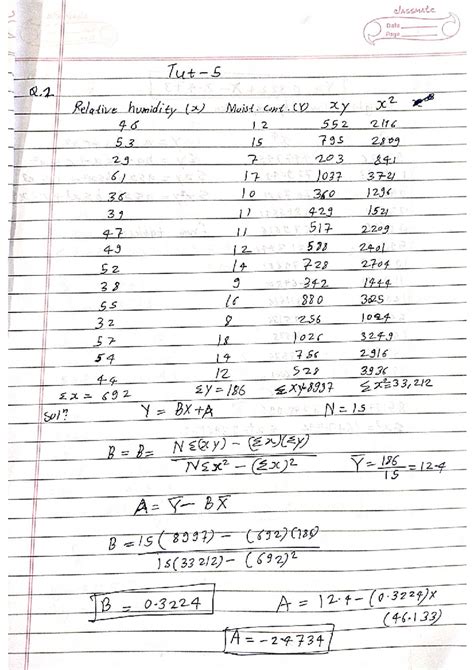 classmate
Date
Page
Tut-5
Q.1
Relative humidity (x) Moist. cont. (Y) xy x²
46 12 552 2116
53 15 795 2809
29 7 203 841
61 17 1037 3721
36 10 360 1296
39 11 429 1521
47 11 517 2209
49 12 588 2401
52 14 728 2704
38 9 342 1444
55 16 880 3025
32 8 256 1024
57 18 1026 3249
54 14 756 2916
44 12 528 3936
Σx = 692 ΣY = 186 ΣXY=8997 Σx²=33,212
Solⁿ Y = BX+A N = 15
B = B = NΣ(xy) - (Σx)(Σy) / NΣx² - (Σx)² Y̅ = 186/15 = 12.4
A = Y̅ - BX̅
B = 15(8997) - (692)(186) / 15(33212) - (692)²
B = 0.3224 A = 12.4 - (0.3224)x
(46.133)
A = -2.4734